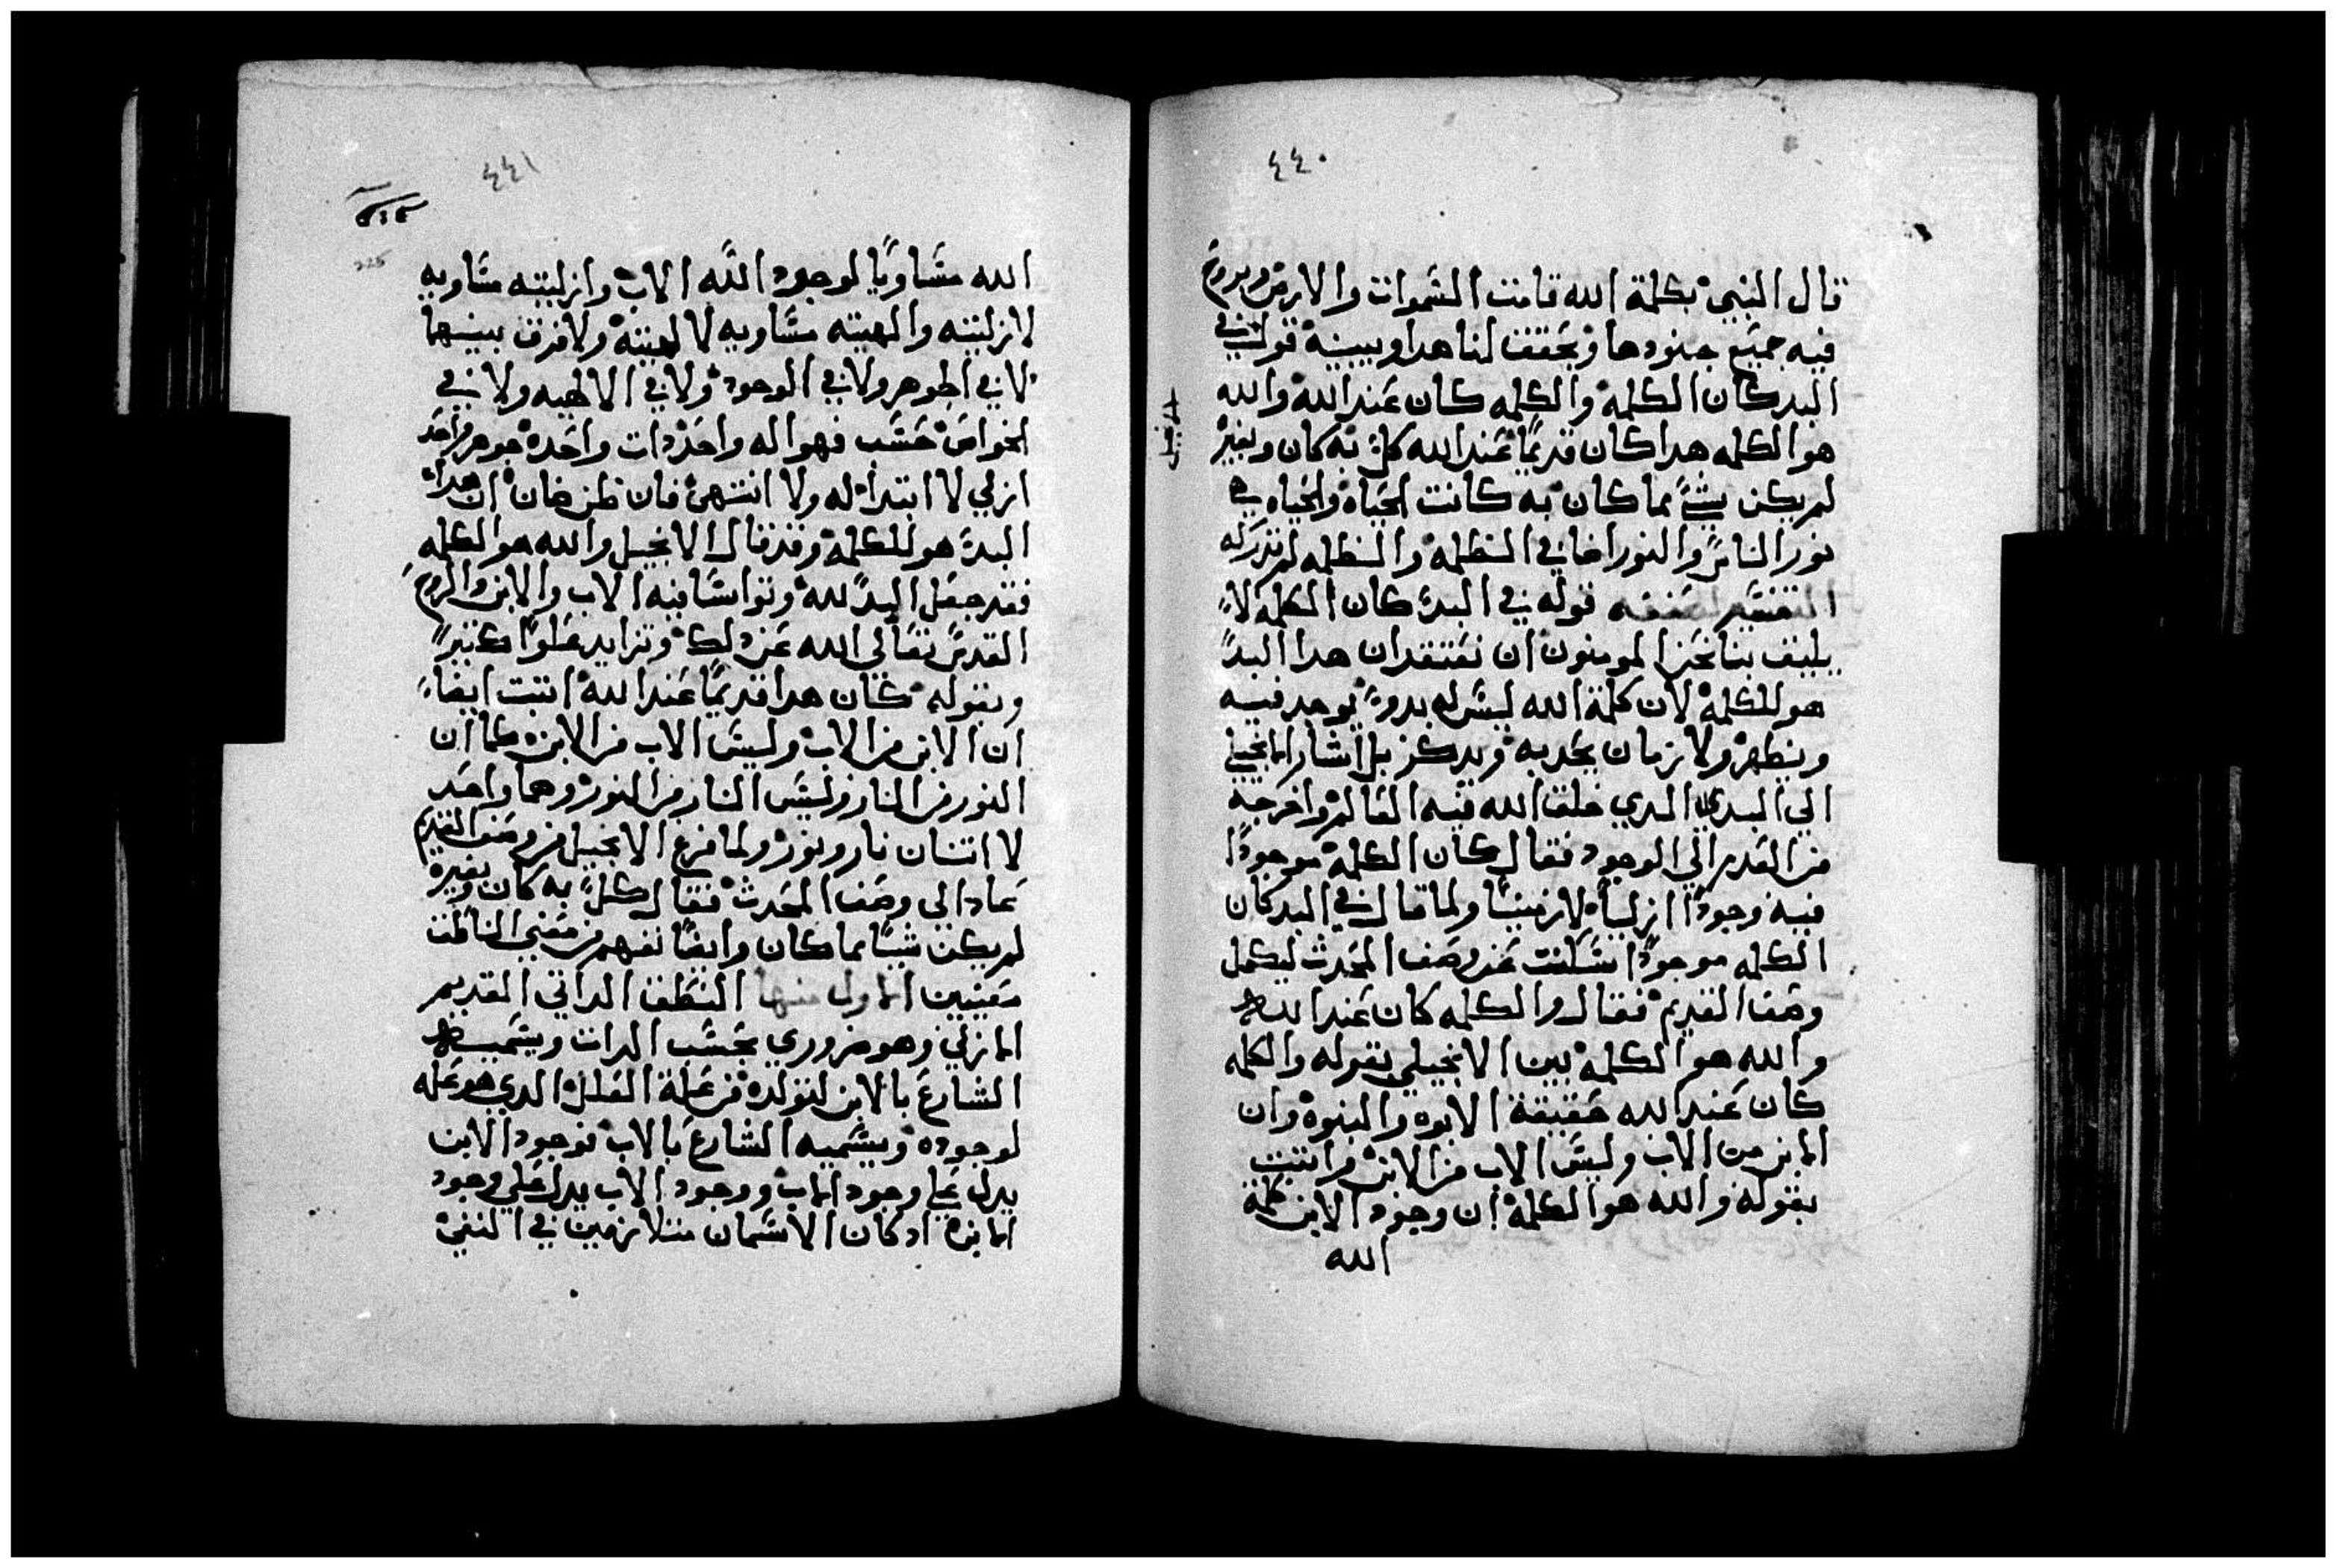 ٤٤٠
قال النبي بكلمة الله قامت السموات والارض وبروح
فيه جميع جنودها ويحقق لنا هدا ويبينه قوله في
البد كان الكلمة والكلمه كان عند الله والله
هو الكلمه هدا كان قديما عند الله كل به كان وبغيره
لم يكن شي مما كان به كانت الحياه والحياه هي
نور الناس والنور اضا في الظلمة والظلمه لم تدركه
التفسير قوله في البدء كان الكلمة لا
يليق بنا نحن المومنون ان نعتقد ان هدا البد
هو للكلمة لان كلمة الله ليس له بدو يوجد فيه
ويظهر ولا زمان يحد به ويدكر بل اشار الانجيلي
الي البدي الدي خلق الله فيه العالم واخرجه
من العدم الي الوجود فقال كان الكلمة موجودا
فيه وجودا ازليا لا زمنيا ولما قال في البد كان
الكلمه موجودا سكت عن وصف المحدث ليكمل
وصف القديم فقال والكلمه كان عند الله
والله هو الكلمة بين الانجيلي بقوله والكلمه
كان عند الله حقيقة الابوه والبنوة وان
الابن من الاب وليس الاب من الابن واتبت
بقوله والله هو الكلمة ان وجود الابن كلمة
الله
٤٤١
225
الله مساويا لوجود الله الاب وازليته مساويه
لازليته والهيته مساويه لالهيته ولا فرق بينهما
لا في الجوهر ولا في الوجود ولا في الالهيه ولا في
الخواص حسب فهو اله واحد دات واحدة جوهر واحد
ازلي لا ابتدا له ولا انتهي فان ظن ضان ان هدا
البدء هو للكلمة وقد قال الانجيل والله هو الكلمه
فقد جعل البد لله وتواسا فيه الاب والابن والروح
القدس تعالي الله عن دلك وتزايد علوا كتيرا
وبقوله كان هدا قديما عند الله اتبت ايضا
ان الابن من الاب وليس الاب من الابن كما ان
النور من النار وليس النار من النور وهما واحد
لا اتنان نار ونور ولما فرغ الانجيل من وصف القديم
عاد الي وصف المحدث فقال كل به كان وبغيره
لم يكن شيا مما كان وايضا نفهم من معني الناطق
معنيين الاول منها النطق الداتي القديم
الازلي وهو ضروري بحسب الدات ويسميه
الشارع بالابن لتولده من علة العلل الدي هو عله
لوجوده ويسميه الشارع بالاب فوجود الابن
يدل علي وجود الاب ووجود الاب يدل علي وجود
الابن اد كان الاسمان متلازمين في النفي